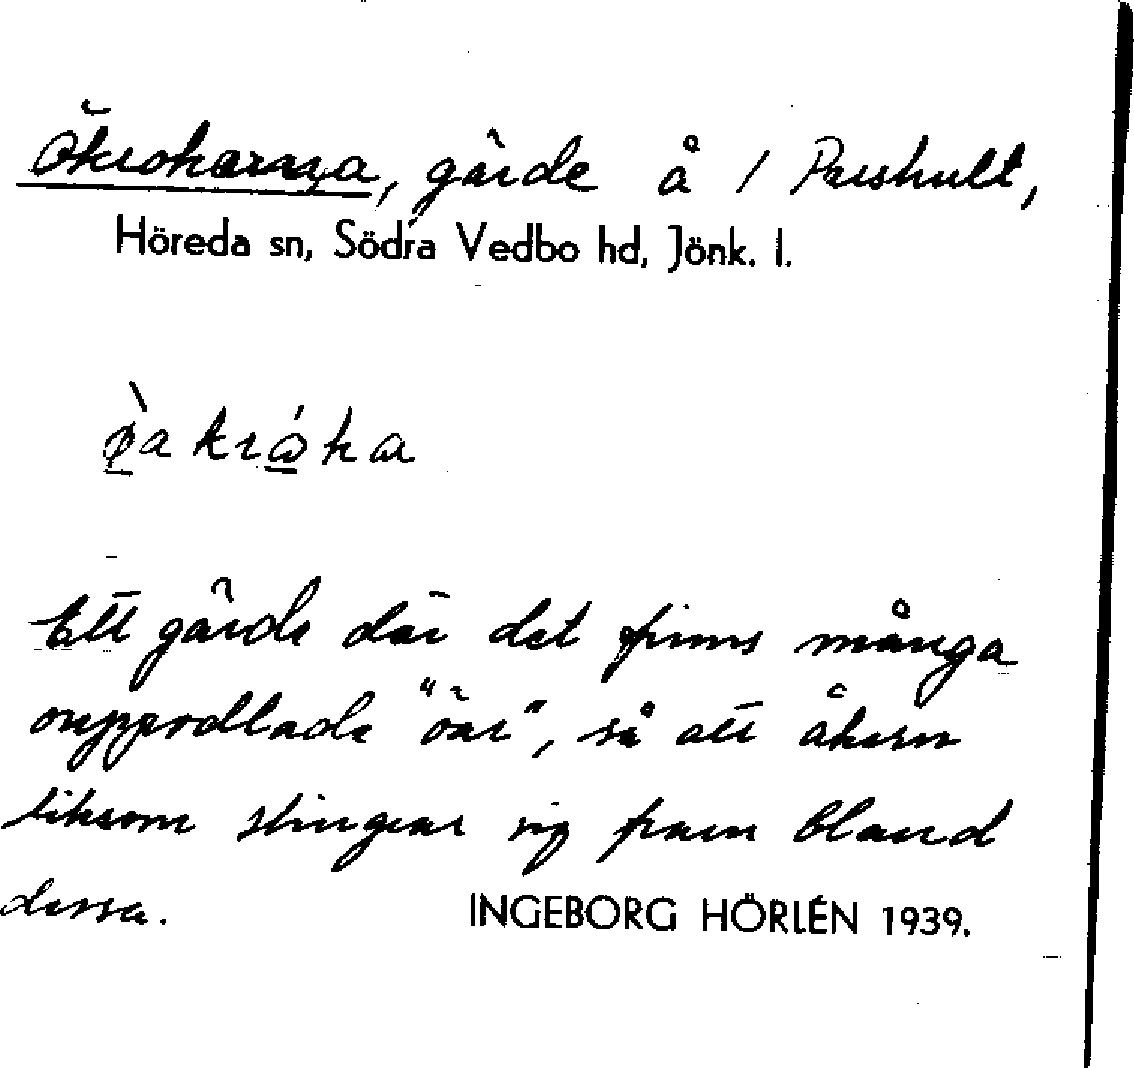 gärde å 1 Preshult,
Höreda sn, Södra Vedbo hd, Jönk. l.
Ett gärde där det finns många
ouppodlade "öar", så att åkern
liksom slingrar sig fram bland
dessa.
INGEBORG HÖRLÉN 1939.